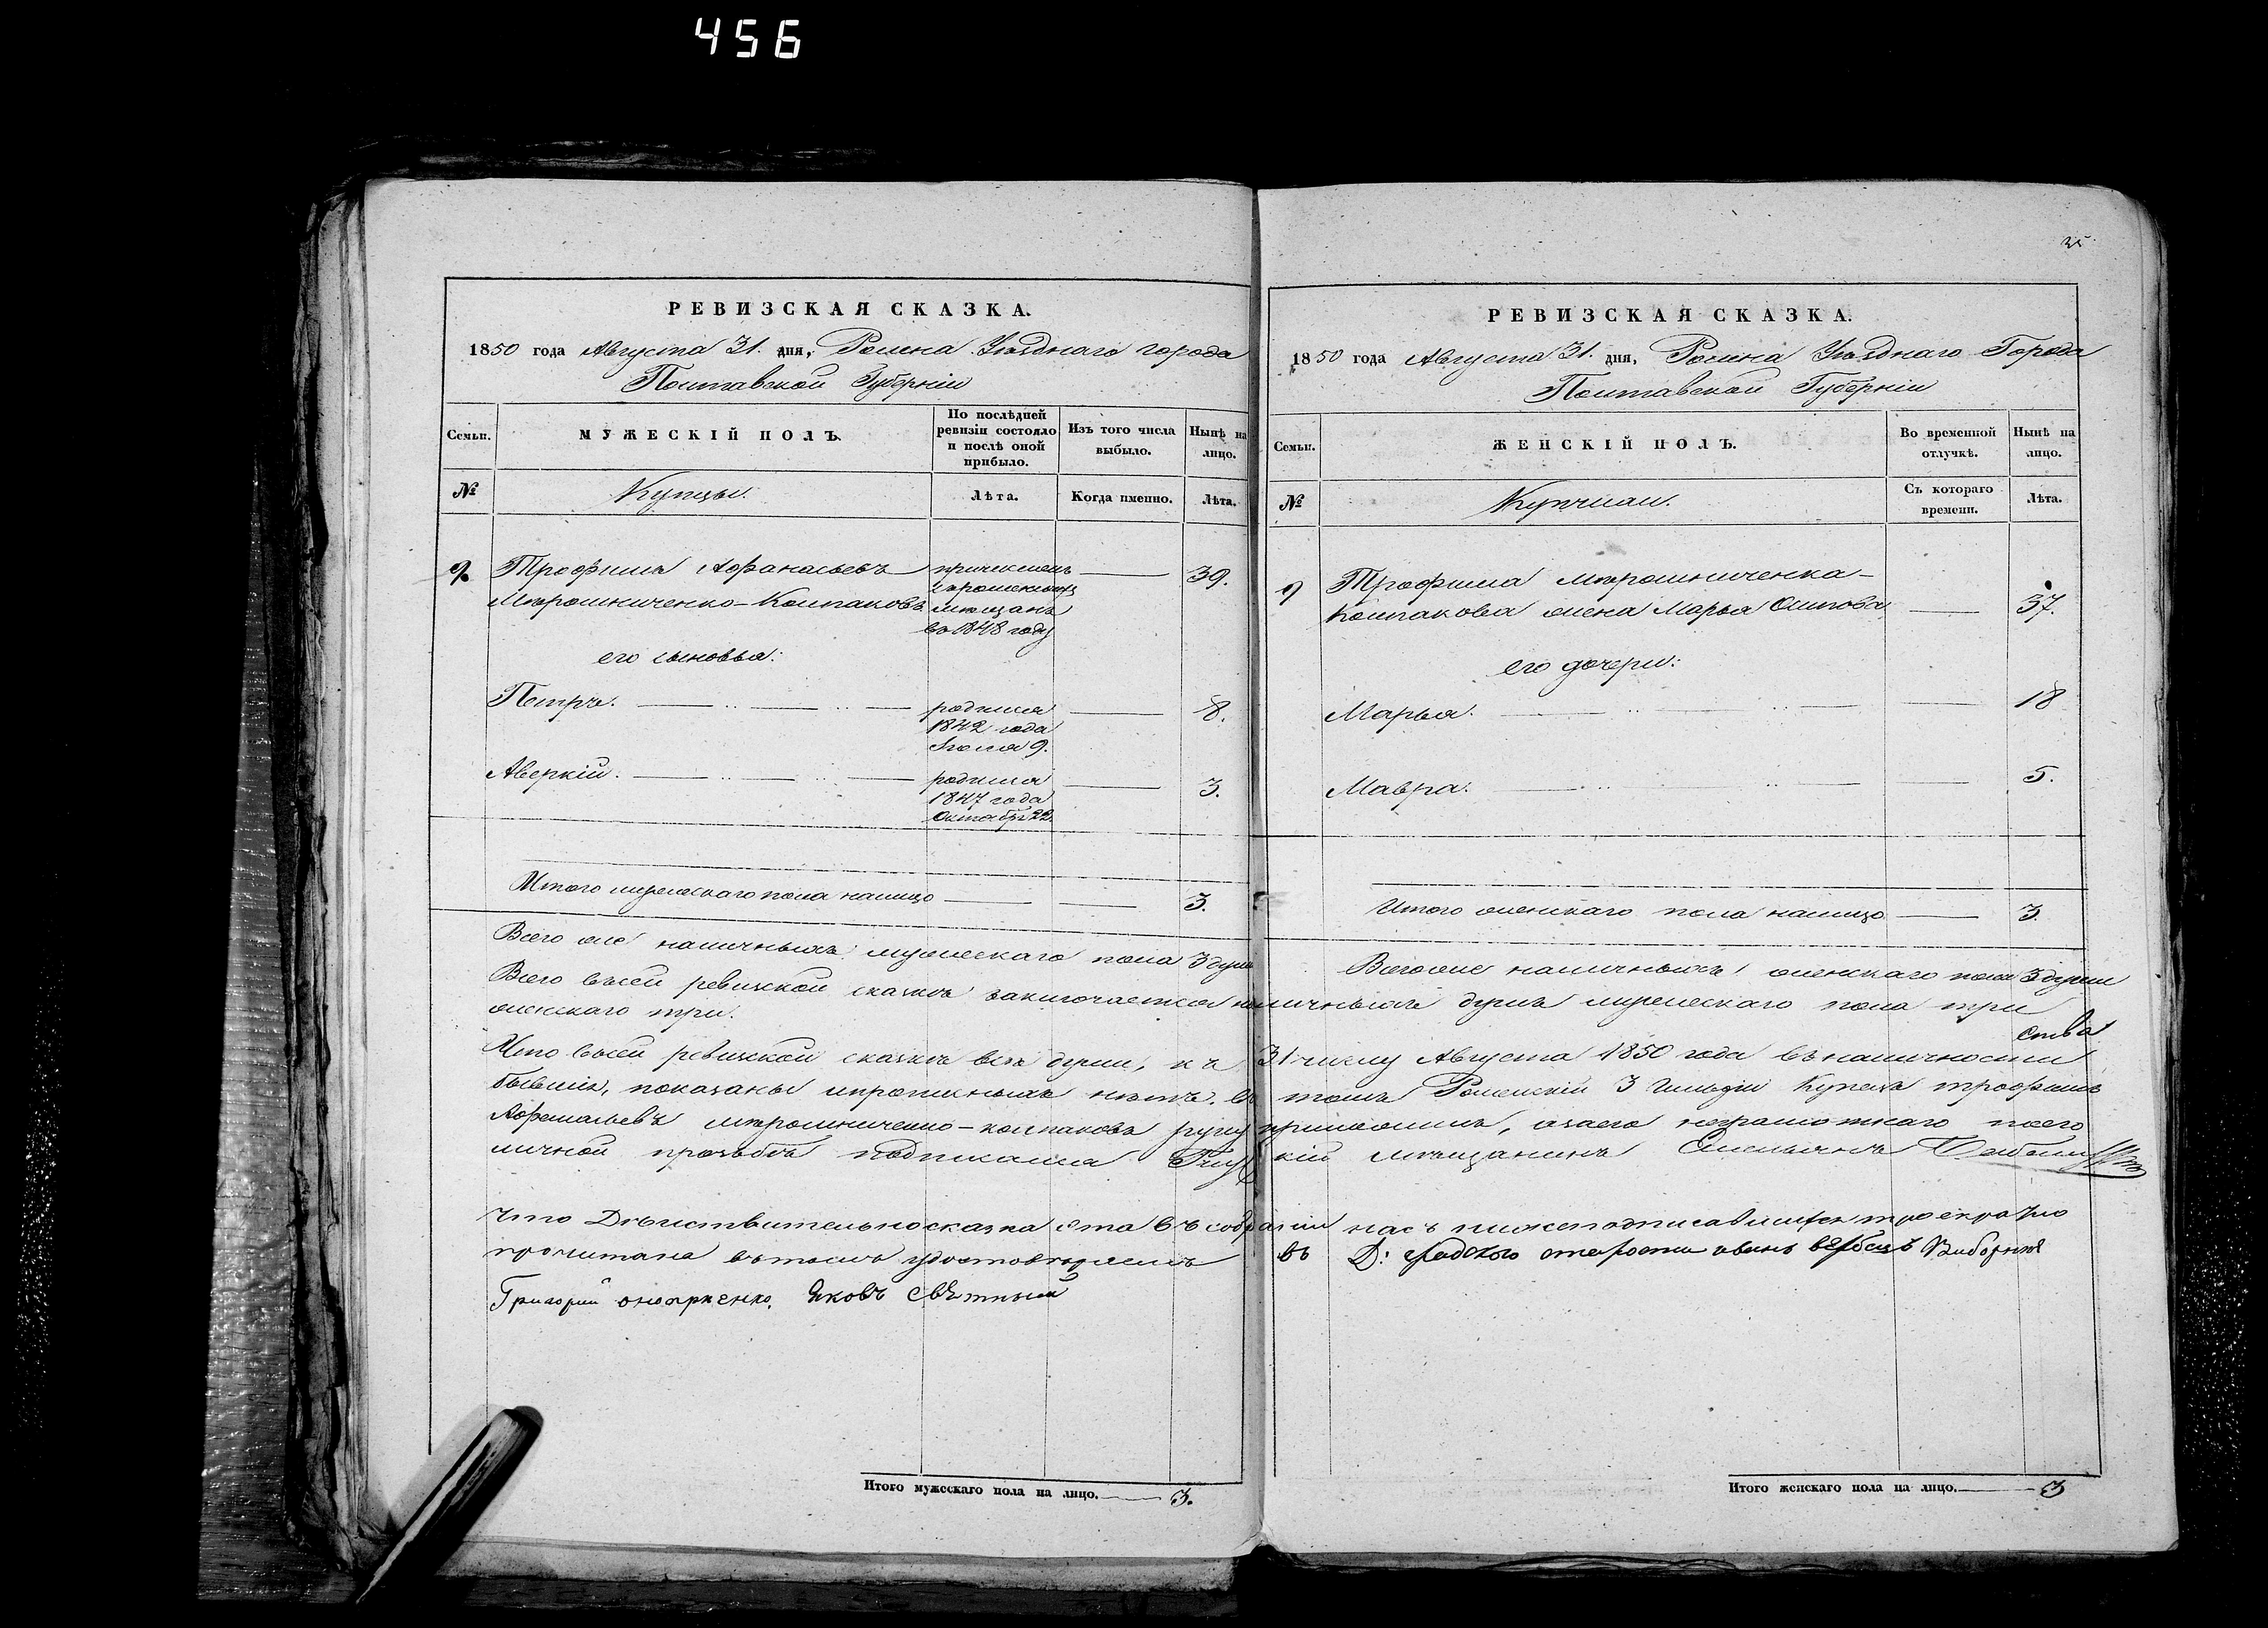 456
35
РЕВИЗСКАЯ СКАЗКА.
1850 года Августа 31. дня, Ромена Уѣзднаго города
Полтавской Губерніи
Семьи.
МУЖЕСКІЙ ПОЛЪ.
По послѣдней ревизіи состояло и послѣ оной прибыло.
Изъ того числа выбыло.
Нынѣ на лицо.
№
Купцы.
Лѣта.
Когда именно.
Лѣта.
9. Трофимъ Афанасьевъ
Мирошниченко-Колпаковъ
причисленъ
мѣщанъ
въ 1848 году
39.
его сыновья:
Петръ.
родился
1842 года
Іюля 9.
8.
Аверкій.
родился
1847 года
Октября 22.
3.
Итого мужескаго пола налицо 3.
Всего же наличныхъ мужескаго пола 3 душ
РЕВИЗСКАЯ СКАЗКА.
1850 года Августа 31. дня, Ромена Уѣзднаго Города
Полтавской Губерніи
Семьи.
ЖЕНСКІЙ ПОЛЪ.
Во временной отлучкѣ.
Нынѣ на лицо.
№
Купчихи.
Съ котораго времени.
Лѣта.
9 Трофима Мирошниченка-
Колпакова жена Марья Осипова 37.
его дочери:
Марья. 18
Мавра. 5.
Итого женскаго пола налицо 3.
Всего же наличныхъ женскаго пола 3 души
Всего въ сей ревизской сказкѣ заключается наличныхъ душъ мужескаго пола три
женскаго три.
ства
Что въ сей ревизской сказкѣ всѣ души, къ 31 числу Августа 1850 года въ наличности
бывшія, показаны и прописныхъ нѣтъ. въ томъ Роменскій 3 Гильдіи Купецъ Трофимъ
Афанасьевъ Мирошниченко-Колпаковъ руку приложилъ, а за его неграмотнаго по его
личной прозьбѣ подписался мѣщанинъ
Что Дѣйствительно сказка эта въ собраніи насъ нижеподписавшихся троекратно
прочитана въ томъ удостовѣряемъ въ Д: Градского старосты иванъ вербецъ Выборные
Григорий Яковъ
Итого мужескаго пола на лицо. 3.
Итого женскаго пола на лицо. 3